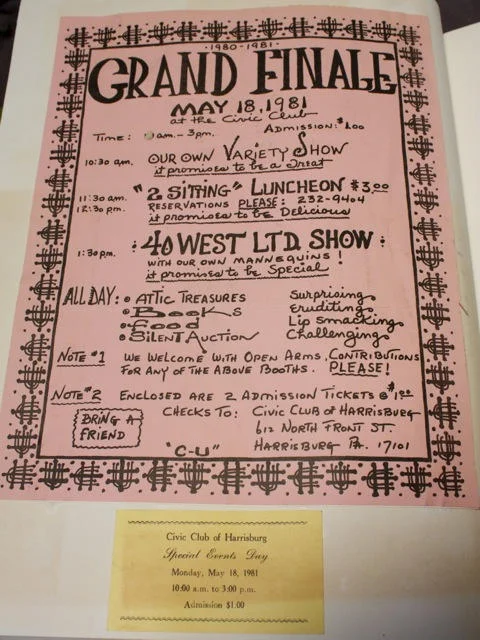 ·1980-1981·
GRAND FINALE
MAY 18, 1981
at the Civic Club
TIME: am. - 3pm. ADMISSION: $1.00
10:30 am. OUR OWN VARIETY SHOW
it promises to be a Treat
11:30 am. "2 SITTING" LUNCHEON $3.00
12:30 pm. RESERVATIONS PLEASE: 232-9404
it promises to be Delicious
1:30 pm. 40 WEST LTD. SHOW
WITH OUR OWN MANNEQUINS!
it promises to be Special
ALL DAY: • ATTIC TREASURES Surprising
• BOOKS Eruditing
• Food Lip Smacking
• SILENT AUCTION Challenging
NOTE #1 WE WELCOME WITH OPEN ARMS, CONTRIBUTIONS
FOR ANY OF THE ABOVE BOOTHS. PLEASE!
NOTE #2 ENCLOSED ARE 2 ADMISSION TICKETS @ $1.00
BRING A FRIEND
CHECKS TO: CIVIC CLUB OF HARRISBURG
612 NORTH FRONT ST.
HARRISBURG PA. 17101
"C-U"
Civic Club of Harrisburg
Special Events Day
Monday, May 18, 1981
10:00 a.m. to 3:00 p.m.
Admission $1.00